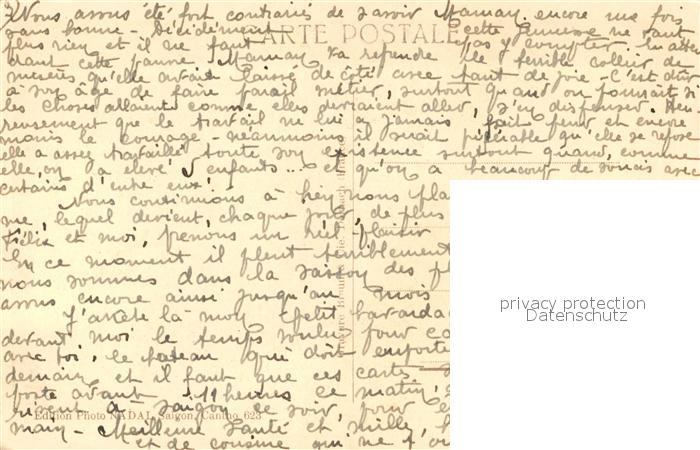 3) Nous avons été fort contrariés de savoir Maman encore une fois
sans bonne - Décidément cette jeunesse ne vaut
CARTE POSTALE
plus rien et il ne faut pas y compter. En attendant
cette pauvre Maman va reprendre le terrible collier de
misères qu'elle avait laissé de côté avec tant de joie - C'est dur
à son âge de faire pareil métier, surtout quand on pourrait si
les choses allaient comme elles devraient aller, s'en dispenser. Heureusement
que le travail ne lui a jamais fait peur et encore
moins le courage - néanmoins il serait préférable qu'elle se repose
elle a assez travaillé toute son existence surtout quand, comme
elle, on a élevé 5 enfants... et qu'on a beaucoup de soucis avec
certains d'entre eux!
Nous continuons à
me, lequel devient, chaque jour, de plus
Félix et moi, prenons un réel plaisir
En ce moment il pleut terriblement
nous sommes dans la saison des
avons encore ainsi jusqu'au mois
J'arrête là mon petit bavarda
devant moi le temps voulu pour
avec toi. le bateau qui doit emporte
demain et il faut que ces cartes
poste avant 11 heures ce matin,
Edition Photo NADAL, Saigon, Cantho, 623
à Saigon ce soir, pour
main - Meilleure santé et mille
et de cousine qui ne
privacy protection
Datenschutz